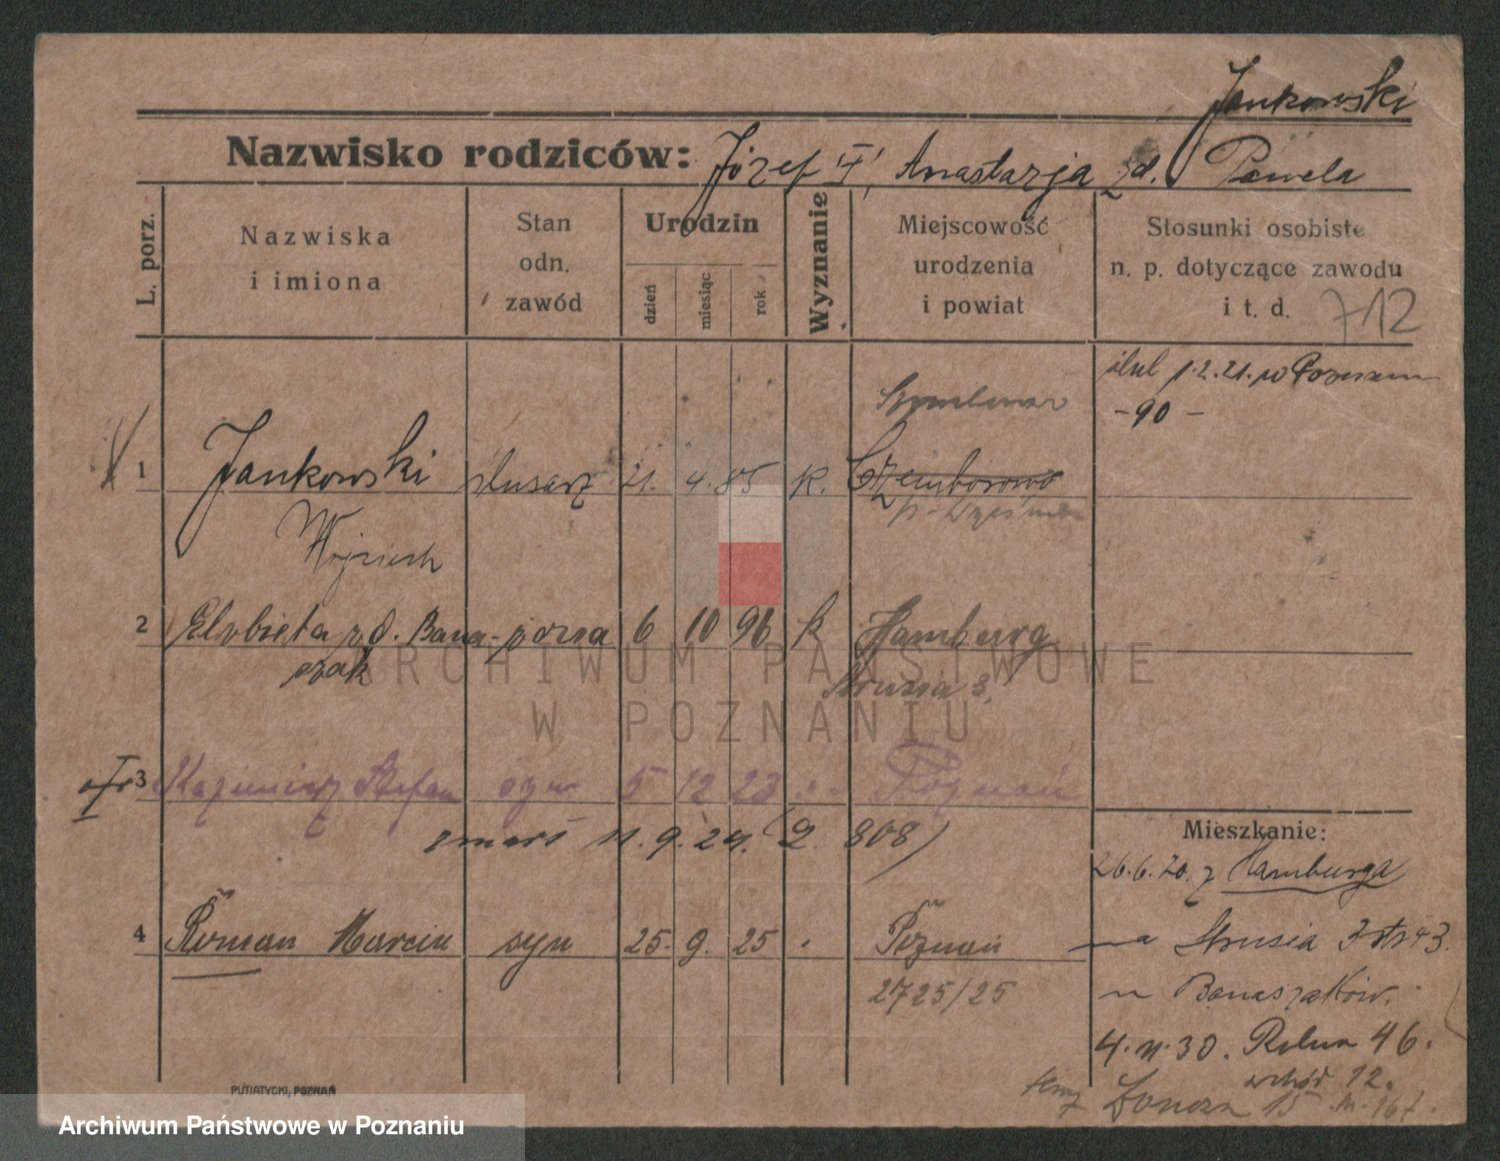 Jankowski
Nazwisko rodziców: Józef "I", Anastazja zd. Pawela
L. porz.
Nazwiska i imiona
Stan odn. zawód
Urodzin
dzień
miesiąc
rok
Wyznanie
Miejscowość urodzenia i powiat
Stosunki osobiste n. p. dotyczące zawodu i t. d.
712
ślub 1.2.21. w Poznaniu
-90-
1 Jankowski ślusarz 21. 4. 85 k. Czemborowo
Wojciech
2 Elżbieta zd. Bana- żona 6 10 96 k Hamburg
szak
Strusia 3.
ARCHIWUM PAŃSTWOWE
W POZNANIU
3 Kazimierz Stefan syn 5 12 23 Poznań
zmarł 11.9.24. (2. 808)
Mieszkanie:
26.6.20. z Hamburga
4 Roman Marcin syn 25. 9. 25 Poznań
na Strusia 3
2725/25
u Banaszaków.
4.11.30. Rolna 46.
wchód 12.
15 m. 167.
PUTIATYCKI, POZNAŃ
Archiwum Państwowe w Poznaniu